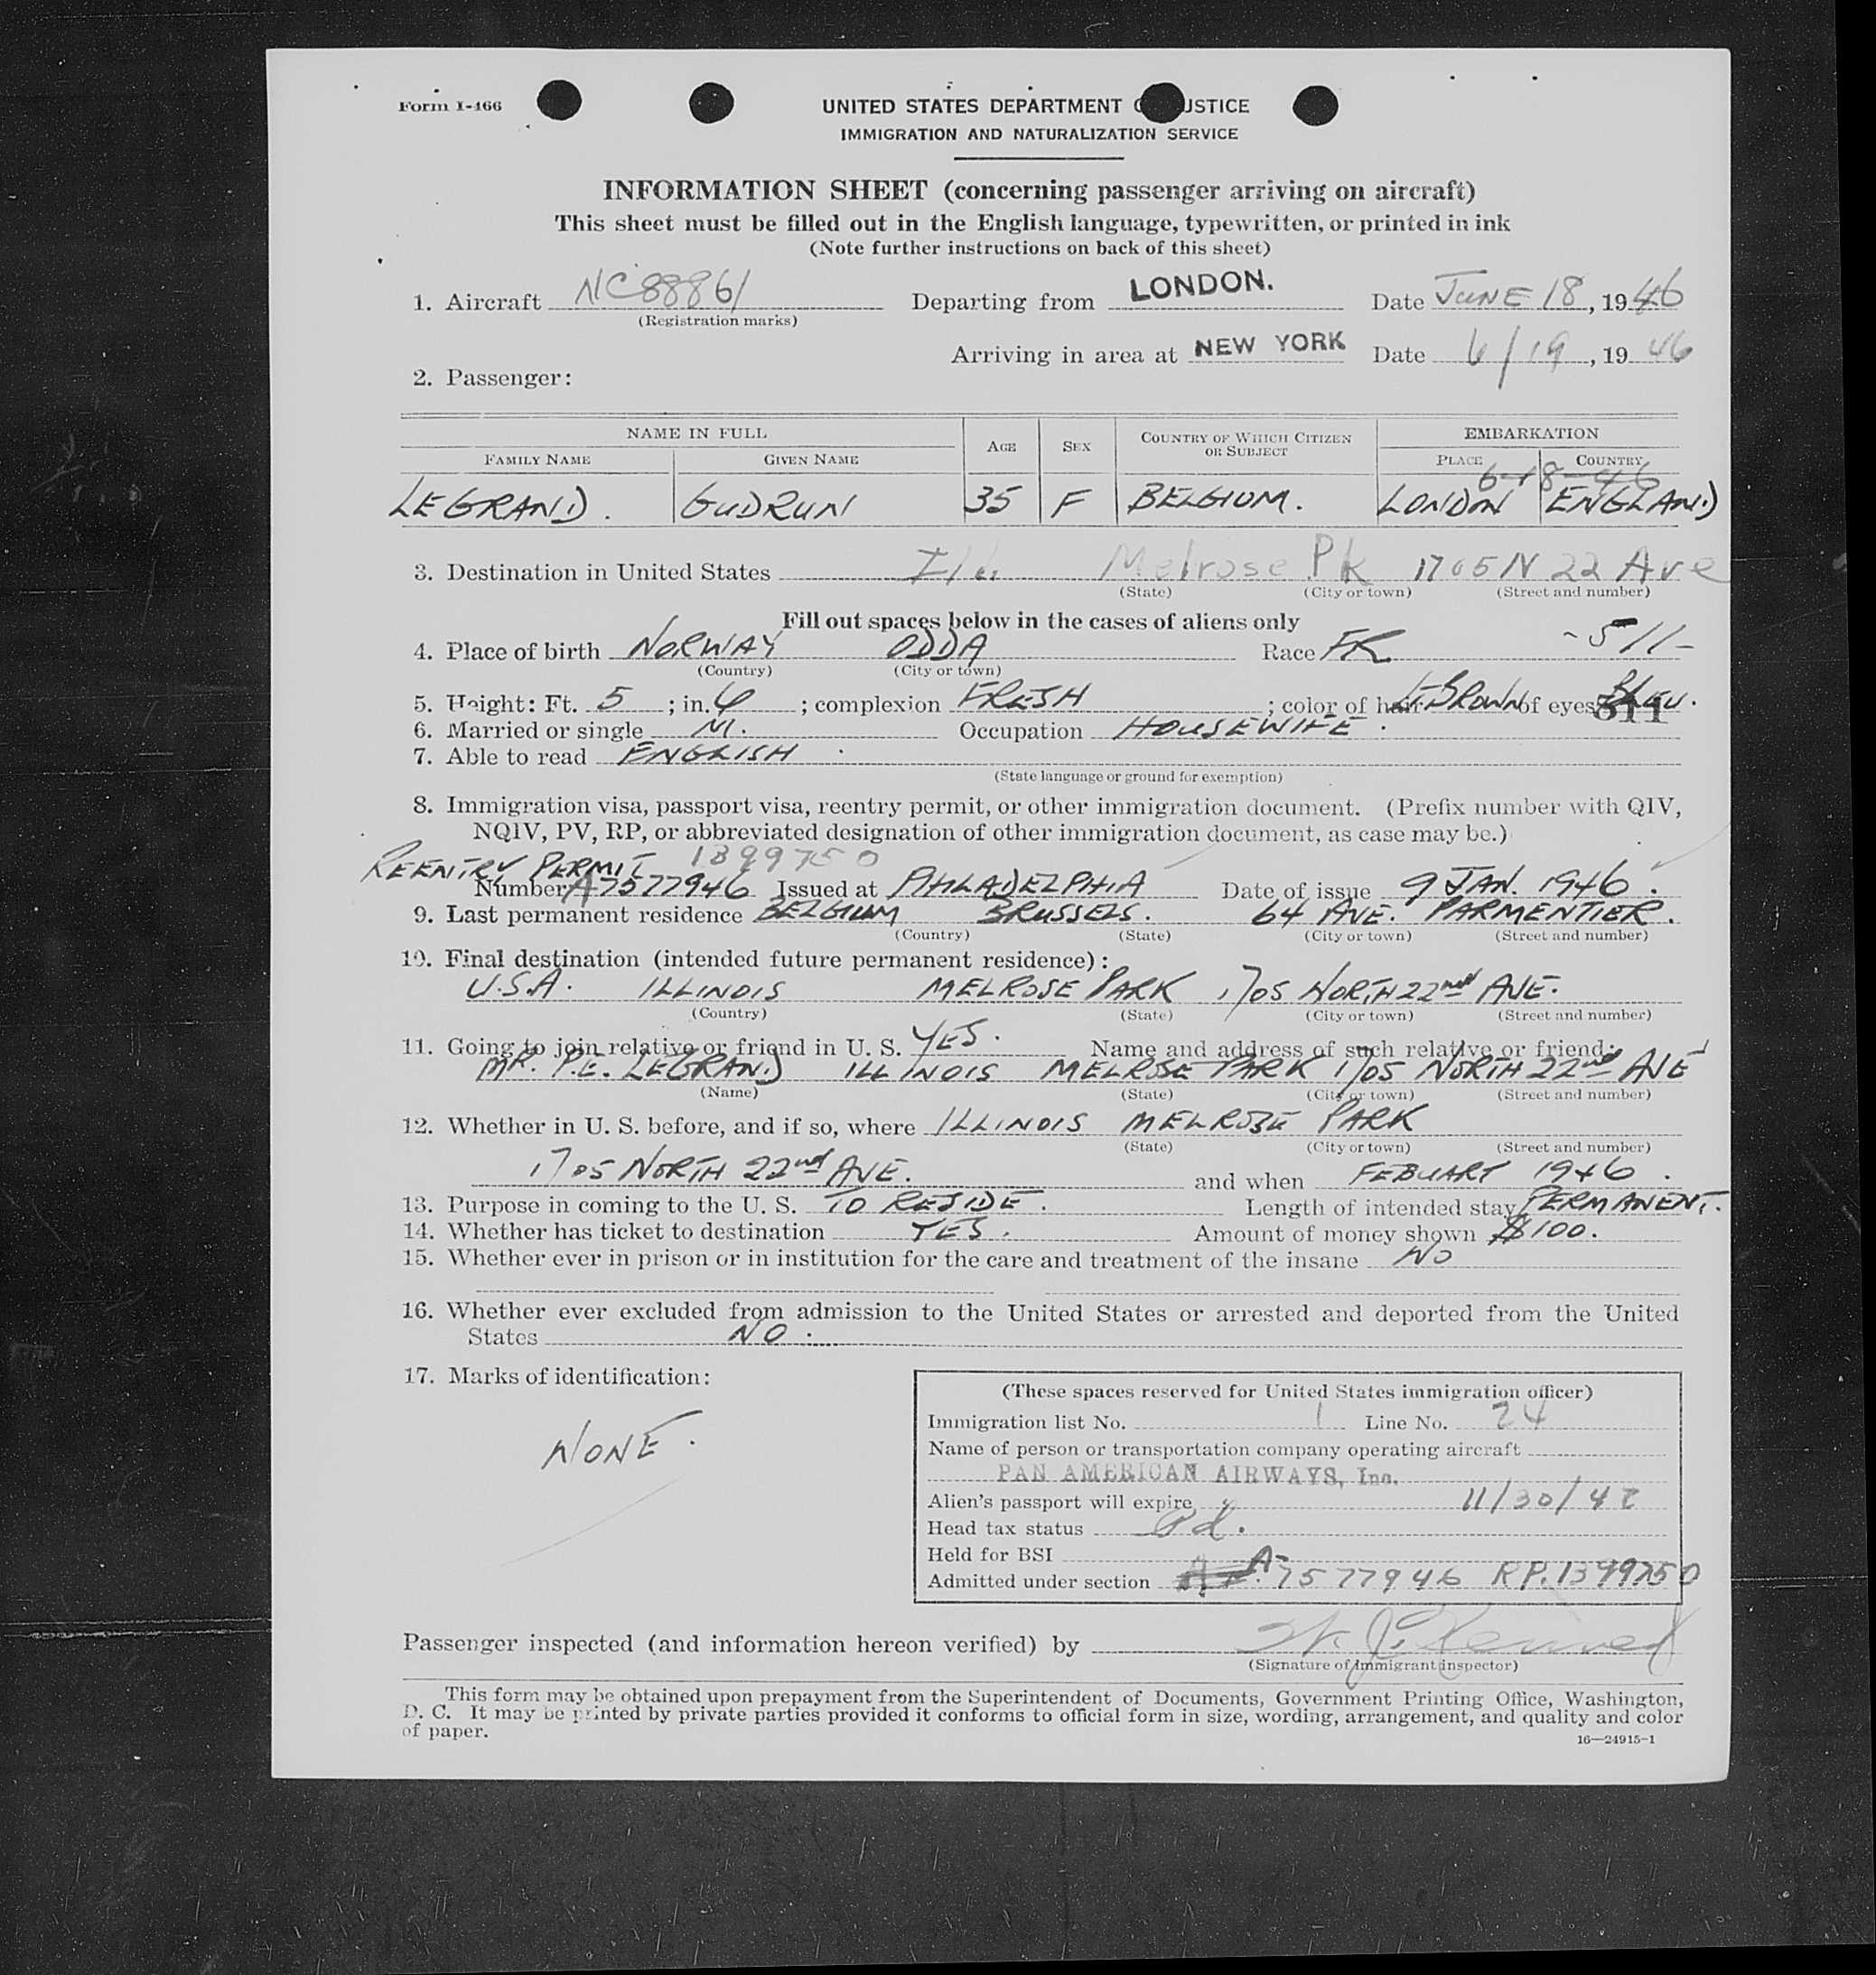 Form I-466
UNITED STATES DEPARTMENT O USTICE
IMMIGRATION AND NATURALIZATION SERVICE
INFORMATION SHEET (concerning passenger arriving on aircraft)
This sheet must be filled out in the English language, typewritten, or printed in ink
(Note further instructions on back of this sheet)
1. Aircraft NC88861 Departing from LONDON. Date JUNE 18, 1946
(Registration marks)
Arriving in area at NEW YORK Date 6/19, 1946
2. Passenger:
NAME IN FULL AGE SEX COUNTRY OF WHICH CITIZEN OR SUBJECT EMBARKATION
FAMILY NAME GIVEN NAME PLACE COUNTRY
6-18-46
LEGRAND. GUDRUN 35 F BELGIUM. LONDON ENGLAND
3. Destination in United States Ill. Melrose Pk 1705 N 22 Ave
(State) (City or town) (Street and number)
Fill out spaces below in the cases of aliens only
4. Place of birth NORWAY ODDA Race FR -511-
(Country) (City or town)
5. Height: Ft. 5; in. 6; complexion FRESH; color of hair LT BROWN of eyes BLEU. 511
6. Married or single M. Occupation HOUSEWIFE.
7. Able to read ENGLISH
(State language or ground for exemption)
8. Immigration visa, passport visa, reentry permit, or other immigration document. (Prefix number with QIV,
NQIV, PV, RP, or abbreviated designation of other immigration document, as case may be.)
REENTRY PERMIT 1399750
Number A7577946 Issued at PHILADELPHIA Date of issue 9 JAN. 1946.
9. Last permanent residence BELGIUM BRUSSELS. 64 AVE. PARMENTIER.
(Country) (State) (City or town) (Street and number)
10. Final destination (intended future permanent residence):
U.S.A. ILLINOIS MELROSE PARK 1705 NORTH 22nd AVE.
(Country) (State) (City or town) (Street and number)
11. Going to join relative or friend in U. S. YES. Name and address of such relative or friend:
MR. P.E. LEGRAND ILLINOIS MELROSE PARK 1705 NORTH 22nd AVE
(Name) (State) (City or town) (Street and number)
12. Whether in U. S. before, and if so, where ILLINOIS MELROSE PARK
(State) (City or town) (Street and number)
1705 NORTH 22nd AVE. and when FEBUARY 1946.
13. Purpose in coming to the U. S. TO RESIDE. Length of intended stay PERMANENT.
14. Whether has ticket to destination YES. Amount of money shown $100.
15. Whether ever in prison or in institution for the care and treatment of the insane NO
16. Whether ever excluded from admission to the United States or arrested and deported from the United
States NO.
17. Marks of identification:
NONE.
(These spaces reserved for United States immigration officer)
Immigration list No. 1 Line No. 24
Name of person or transportation company operating aircraft
PAN AMERICAN AIRWAYS, Inc.
Alien's passport will expire 11/30/47
Head tax status Pd.
Held for BSI
Admitted under section A-7577946 RP. 1399750
Passenger inspected (and information hereon verified) by
(Signature of immigrant inspector)
This form may be obtained upon prepayment from the Superintendent of Documents, Government Printing Office, Washington,
D. C. It may be printed by private parties provided it conforms to official form in size, wording, arrangement, and quality and color
of paper.
16—24915-1